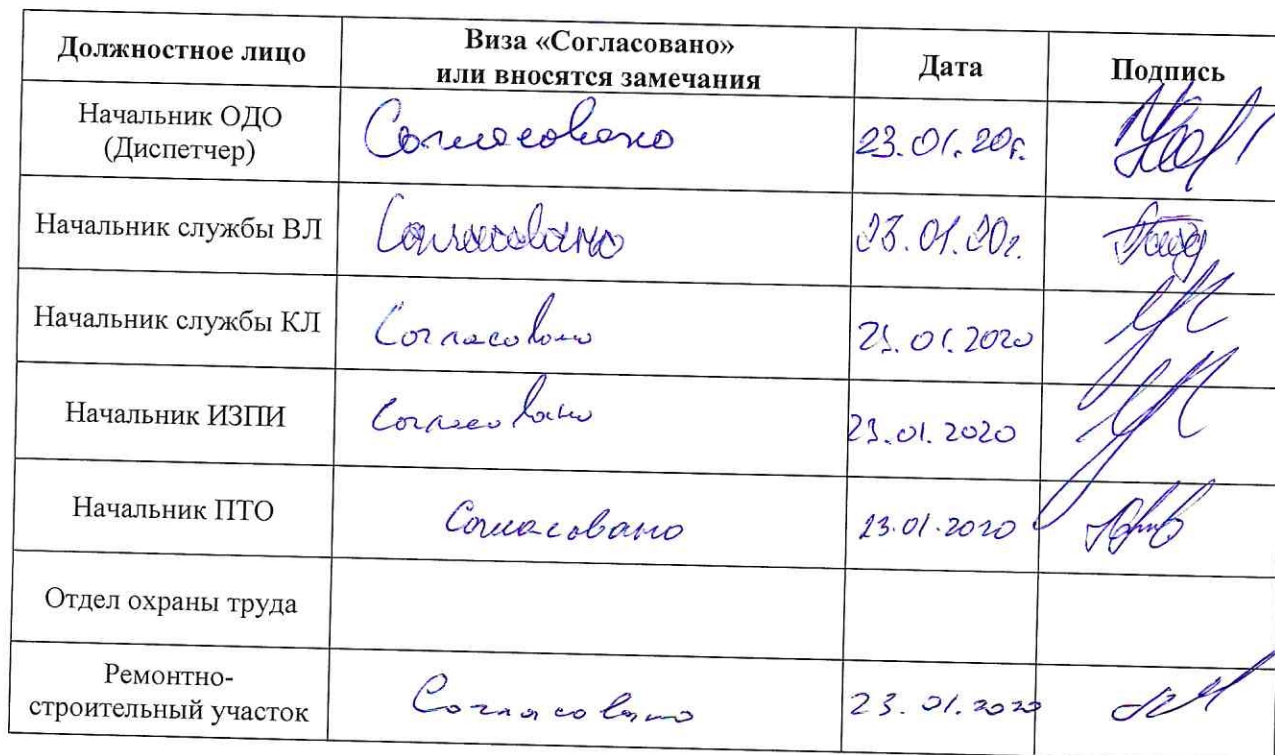 Должностное лицо
Виза «Согласовано»
или вносятся замечания
Дата
Подпись
Начальник ОДО
(Диспетчер)
Согласовано
23.01.20г.
Начальник службы ВЛ
Согласовано
23.01.20г.
Начальник службы КЛ
Согласовано
23.01.2020
Начальник ИЗПИ
Согласовано
23.01.2020
Начальник ПТО
Согласовано
23.01.2020
Отдел охраны труда
Ремонтно-
строительный участок
Согласовано
23.01.2020